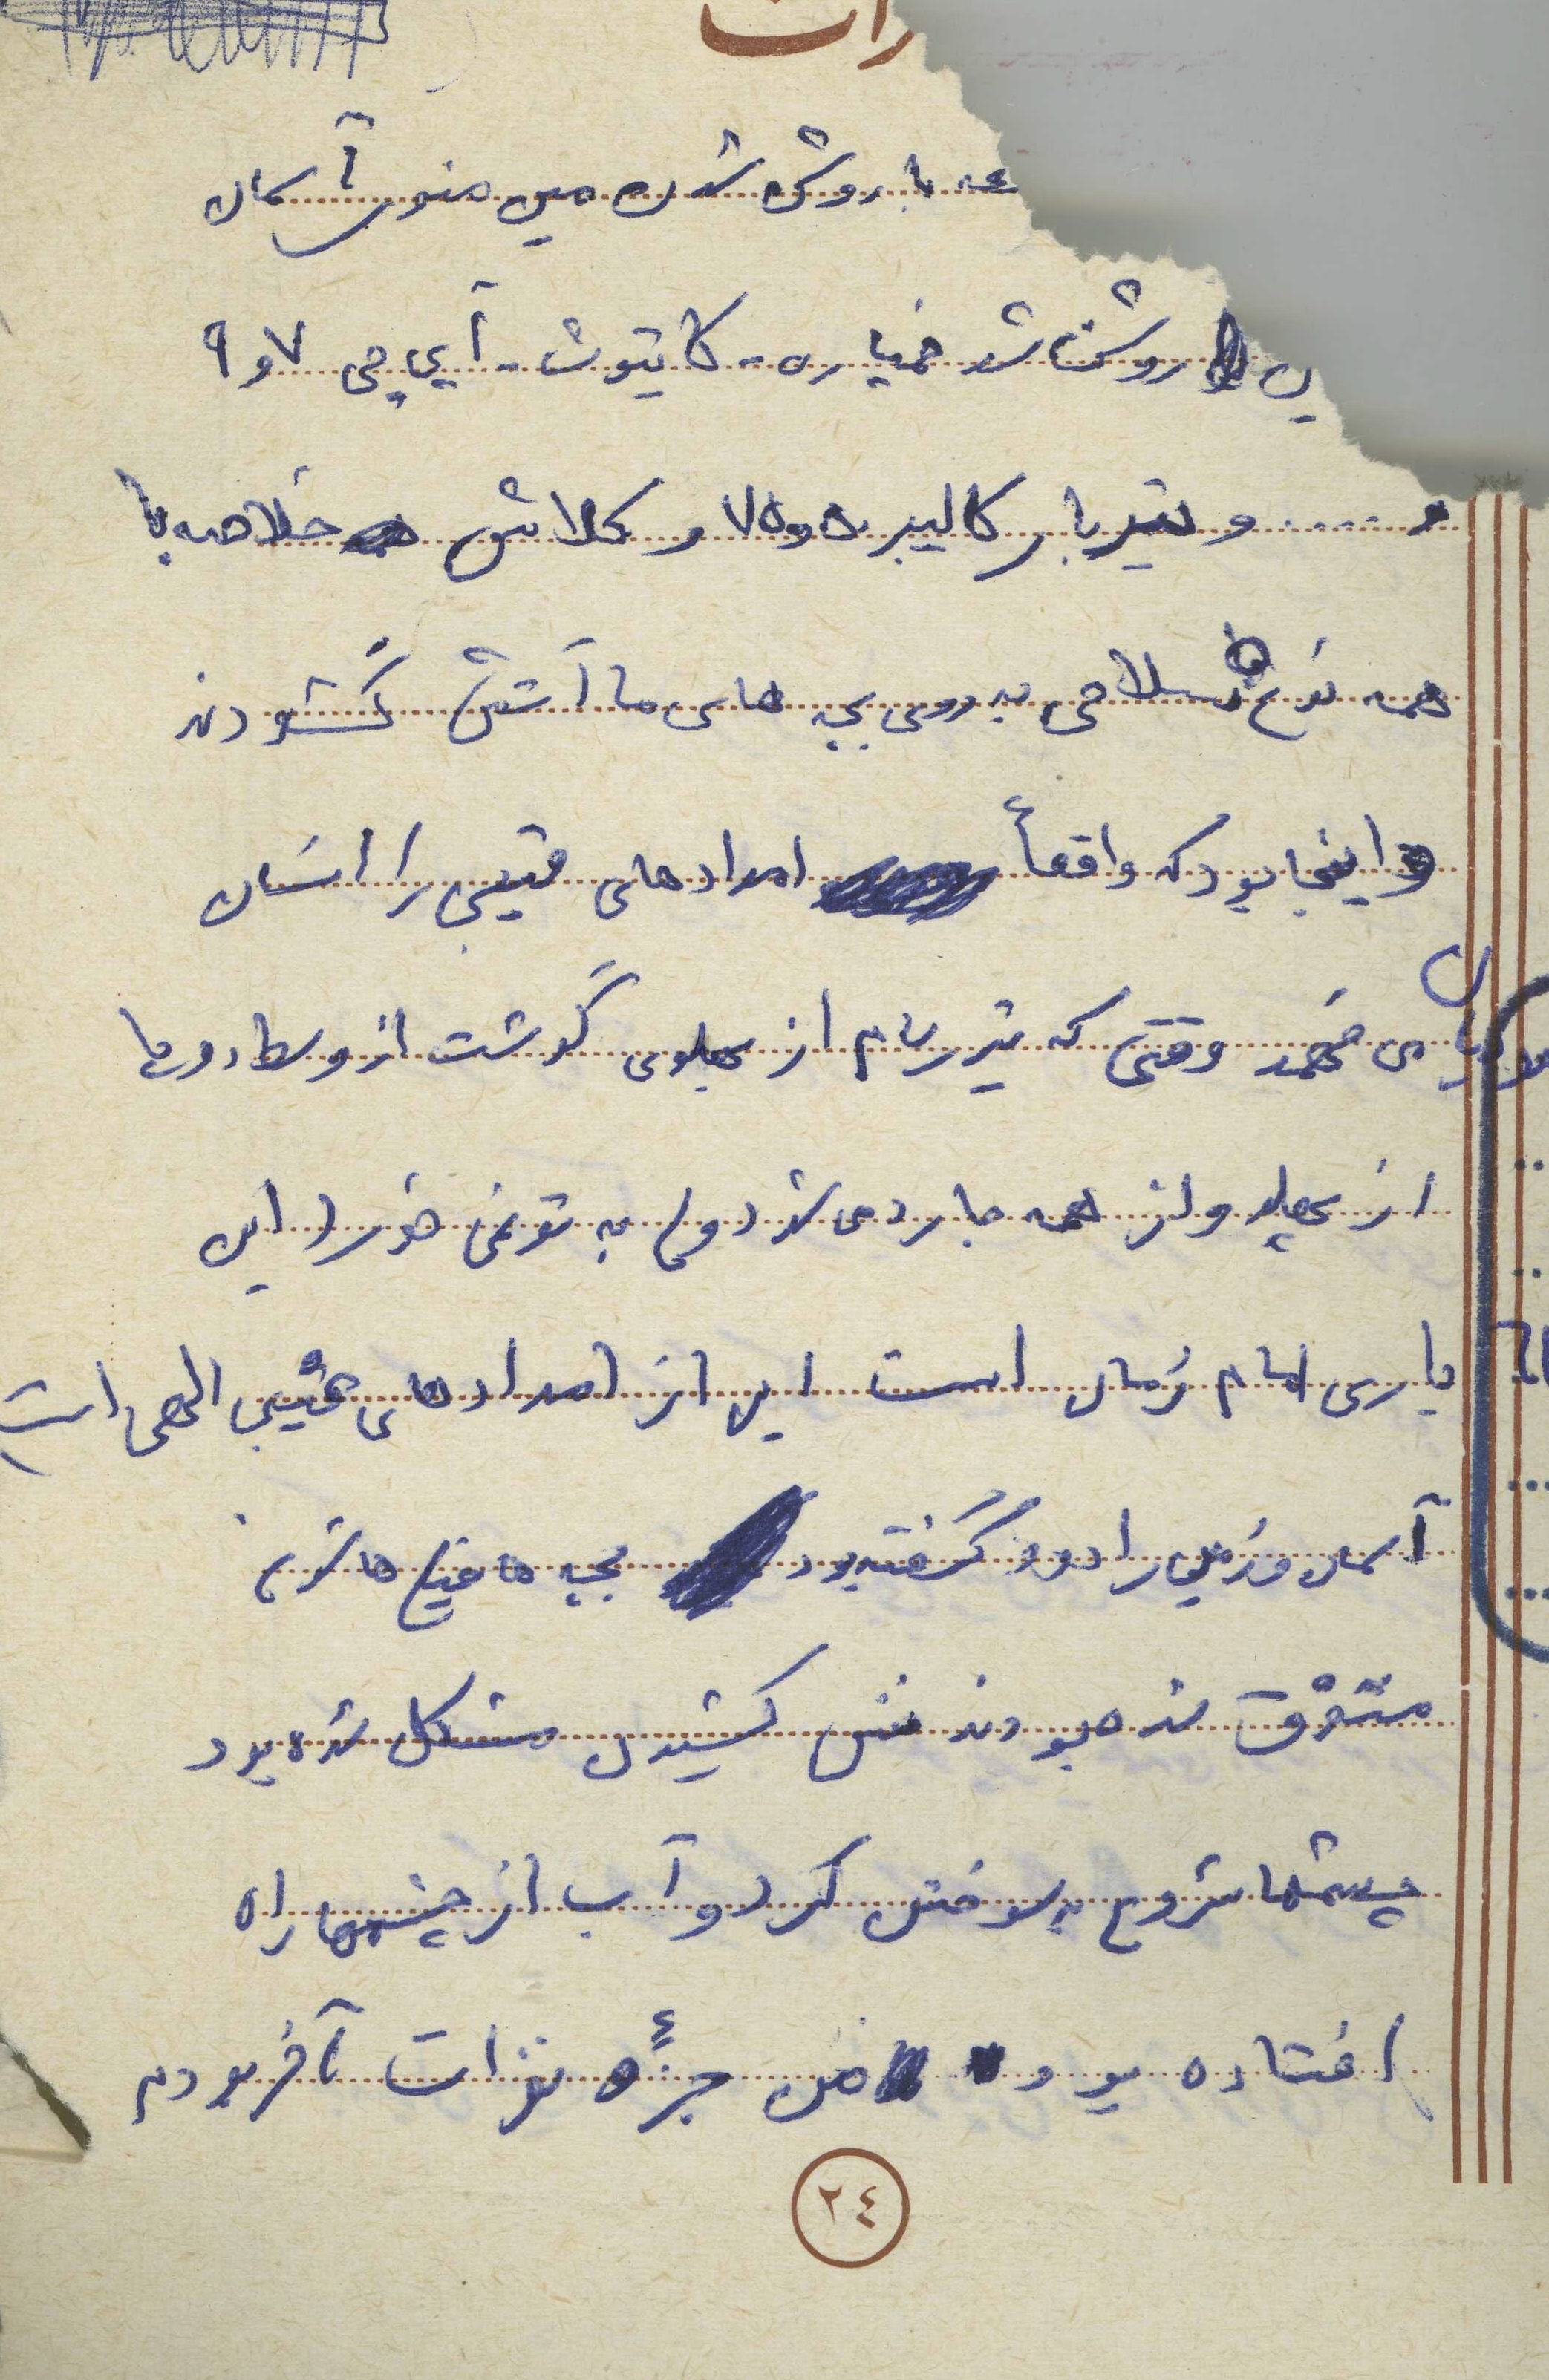 ـعه با روشن شدن مین منور آسمان
ن روشن شد خمپاره - کاتیوشا - آرپی جی ۷ و ۹
و ..... و تیربار کالیبر ۵۰ و ۷۵ و کلاش خلاصه با
همه نوع سلاحی به روی بچه های ما آتش گشودند
و اینجا بود که واقعاً امدادهای غیبی را انسان
می فهمد وقتی که تیر رسام از پهلوی گوشت از وسط دو پا
از پهلو و از همه جا رد می شد ولی به تو نمی خورد این
یاری امام زمان است این از امدادهای غیبی الهی است
آسمان و زمین را دود گرفته بود بچه ها خیلی ها شونم
متفرق شده بودند نفس کشیدن مشکل شده بود
چشمها شروع به سوختن کرد و آب از چشمها راه
افتاده بود و من جزء نفرات آخر بودم
٢٤